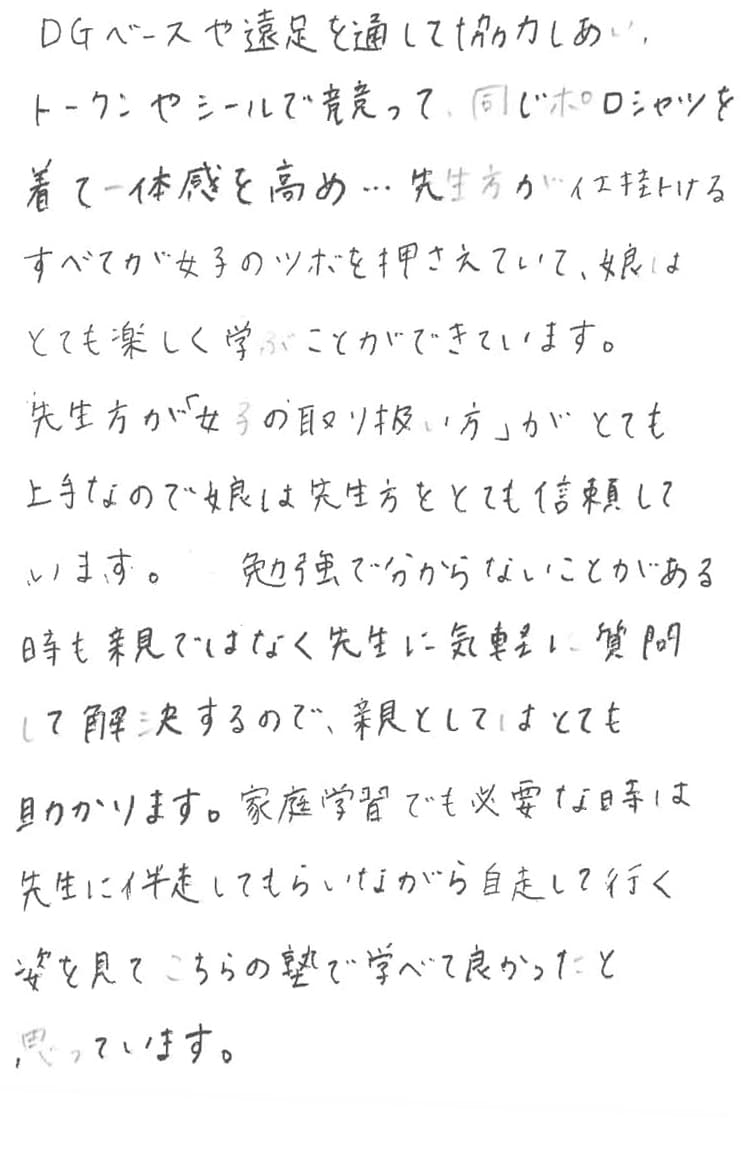 DGベースや遠足を通して協力しあい、
トークンやシールで競って、同じポロシャツを
着て一体感を高め…先生方が仕掛ける
すべてが女子のツボを押さえていて、娘は
とても楽しく学ぶことができています。
先生方が「女子の取り扱い方」がとても
上手なので娘は先生方をとても信頼して
います。 勉強で分からないことがある
時も親ではなく先生に気軽に質問
して解決するので、親としてはとても
助かります。家庭学習でも必要な時は
先生に伴走してもらいながら自走して行く
姿を見てこちらの塾で学べて良かったと
思っています。